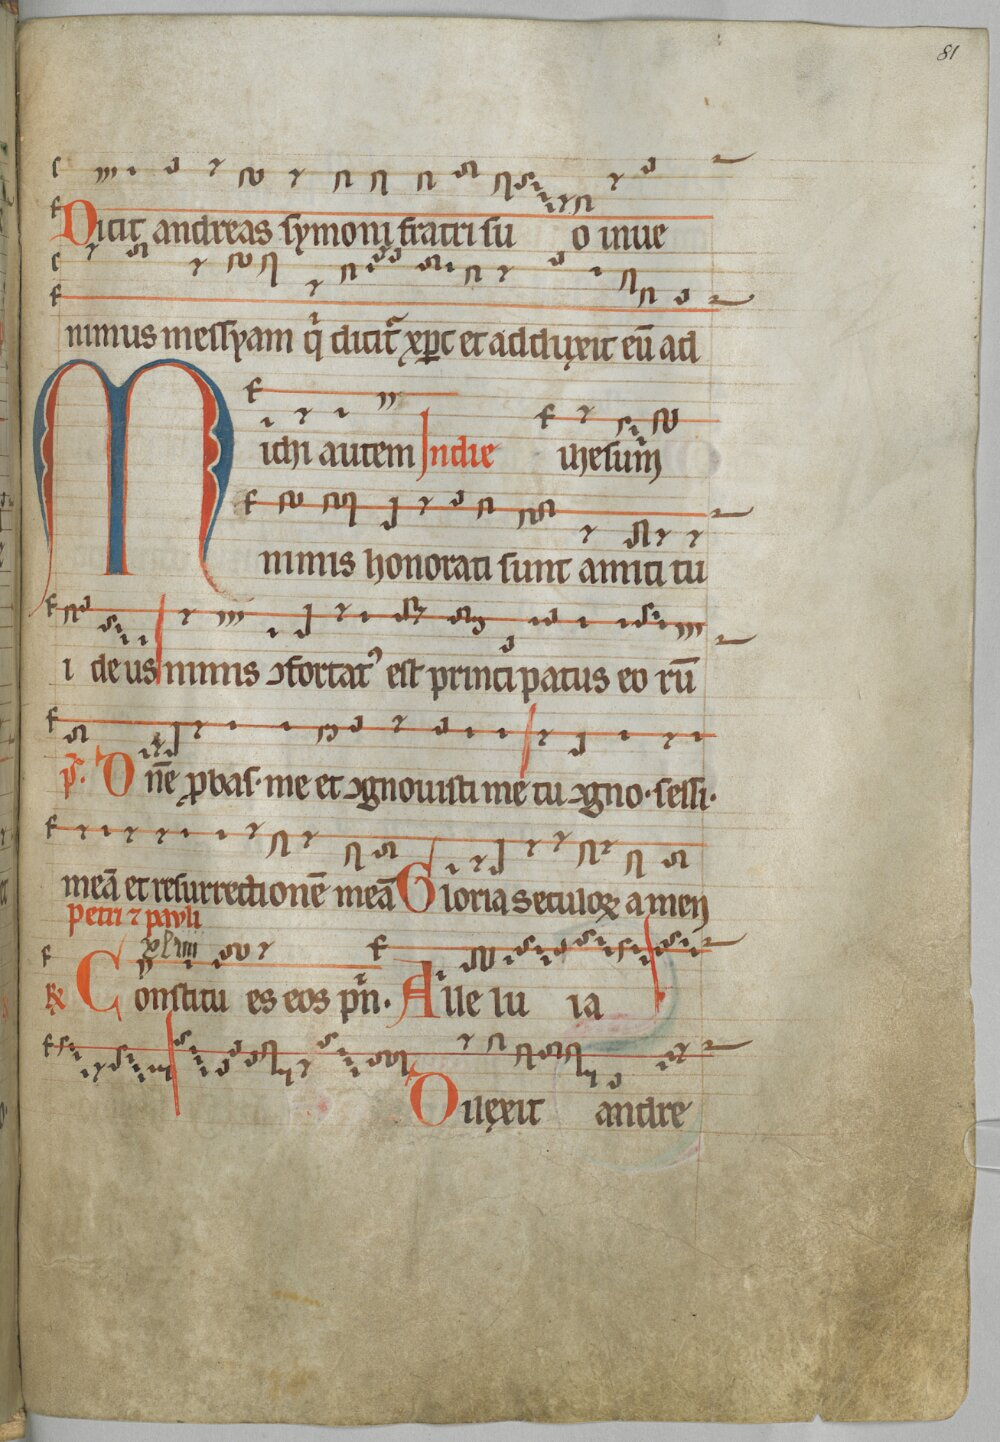 81
Dicit andreas symoni fratri su o inue
nimus messyam q̇ dicit᷑ xp̄c et adduxit eū ad
ichi autem Indie ihesum̄
nimis honorati sunt amici tu
i deus nimis ɔfortatꝰ est princi patus eo rū
ps. Dn̄e ꝓbas·me et ɔgnouisti me tu ɔgno·scisti·
meā et resurrectionē meā Gloria seculoꝝ amen
petri ⁊ pavli
xlviii
℞ Constitu es eos pn̄. Alle lu ia
Dilexit andre